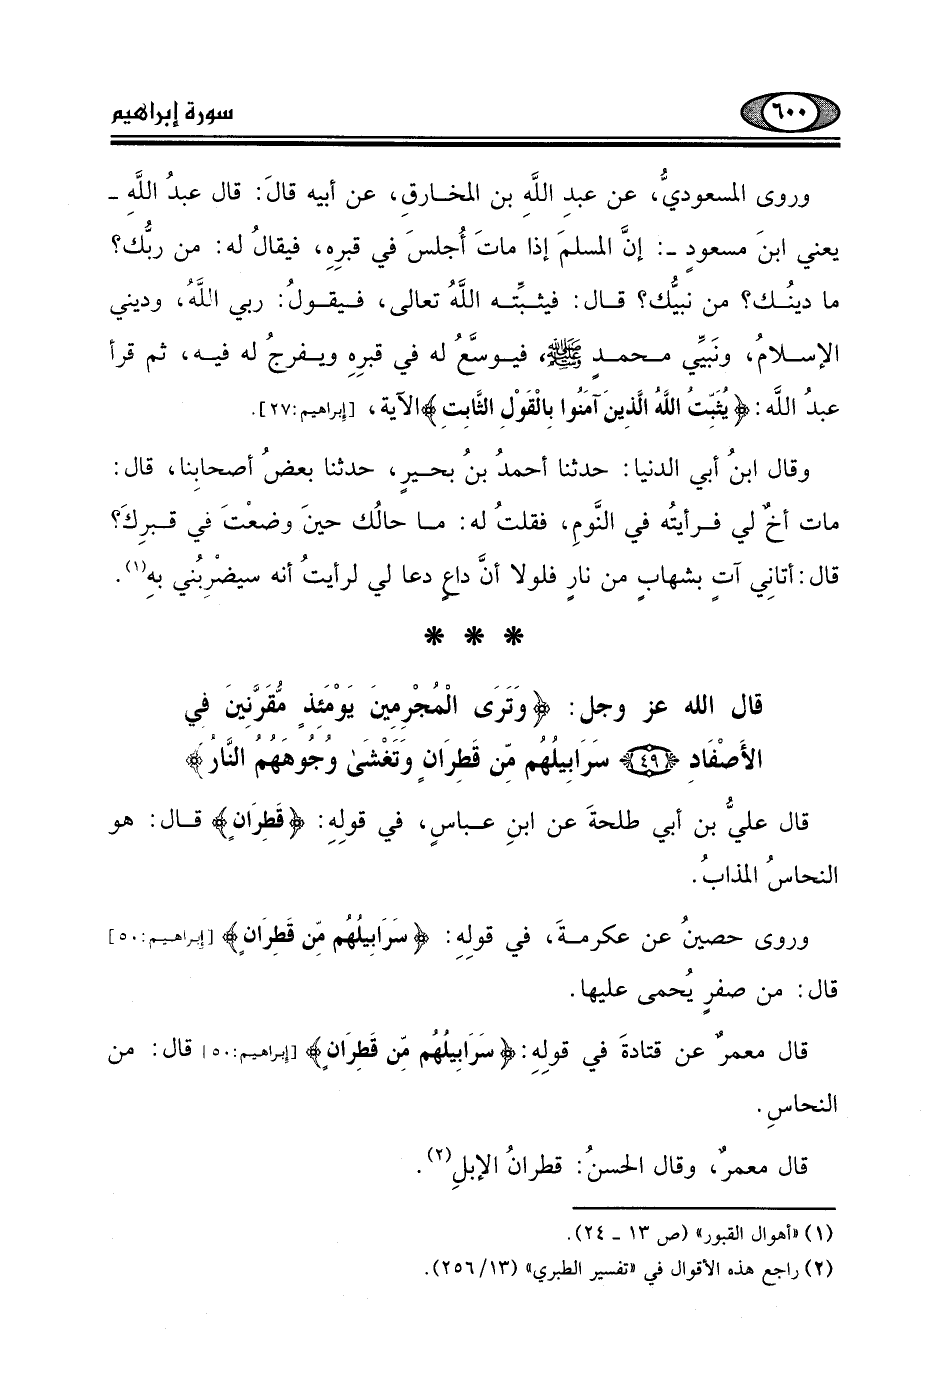 ٦٠٠ سورة إبراهيم
وروى المسعوديُّ، عن عبدِ اللَّهِ بن المخارقِ، عن أبيه قالَ: قال عبدُ اللَّهِ ـ
يعني ابنَ مسعودٍ ـ: إنَّ المسلمَ إذا ماتَ أُجلسَ في قبرِه، فيقالُ له: من ربُّك؟
ما دينُك؟ من نبيُّك؟ قال: فيثبِّته اللَّهُ تعالى، فيقولُ: ربي اللَّهُ، وديني
الإسلامُ، ونَبيِّي محمدٍ ﷺ، فيوسَّعُ له في قبرِه ويفرجُ له فيه، ثم قرأَ
عبدُ اللَّه: ﴿يُثَبِّتُ اللَّهُ الَّذِينَ آمَنُوا بِالْقَوْلِ الثَّابِتِ﴾الآية، [إبراهيم:٢٧].
وقال ابنُ أبي الدنيا: حدثنا أحمدُ بنُ بحيرٍ، حدثنا بعضُ أصحابِنا، قال:
مات أخٌ لي فرأيتُه في النَّومِ، فقلتُ له: ما حالُك حينَ وضعْتَ في قبرِكَ؟
قال: أتانِي آتٍ بشهابٍ من نارٍ فلولا أنَّ داعٍ دعا لي لرأيتُ أنه سيضْرِبُني بهِ(١).
* * *
قال الله عز وجل: ﴿وَتَرَى الْمُجْرِمِينَ يَوْمَئِذٍ مُّقَرَّنِينَ فِي
الأَصْفَادِ ﴿٤٩﴾ سَرَابِيلُهُم مِّن قَطِرَانٍ وَتَغْشَىٰ وُجُوهَهُمُ النَّارُ﴾
قال عليُّ بن أبي طلحةَ عن ابنِ عباسٍ، في قولِهِ: ﴿قَطِرَانٍ﴾ قال: هو
النحاسُ المذابُ.
وروى حصينُ عن عكرمةَ، في قولِهِ: ﴿سَرَابِيلُهُم مِّن قَطِرَانٍ﴾ [إبراهيم:٥٠]
قال: من صفرٍ يُحمى عليها.
قال معمرٌ عن قتادةَ في قولِهِ: ﴿سَرَابِيلُهُم مِّن قَطِرَانٍ﴾ [إبراهيم:٥٠] قال: من
النحاسِ.
قال معمرٌ، وقال الحسنُ: قطرانُ الإبلِ(٢).
(١) «أهوال القبور» (ص ١٣ ـ ٢٤).
(٢) راجع هذه الأقوال في «تفسير الطبري» (١٣/ ٢٥٦).